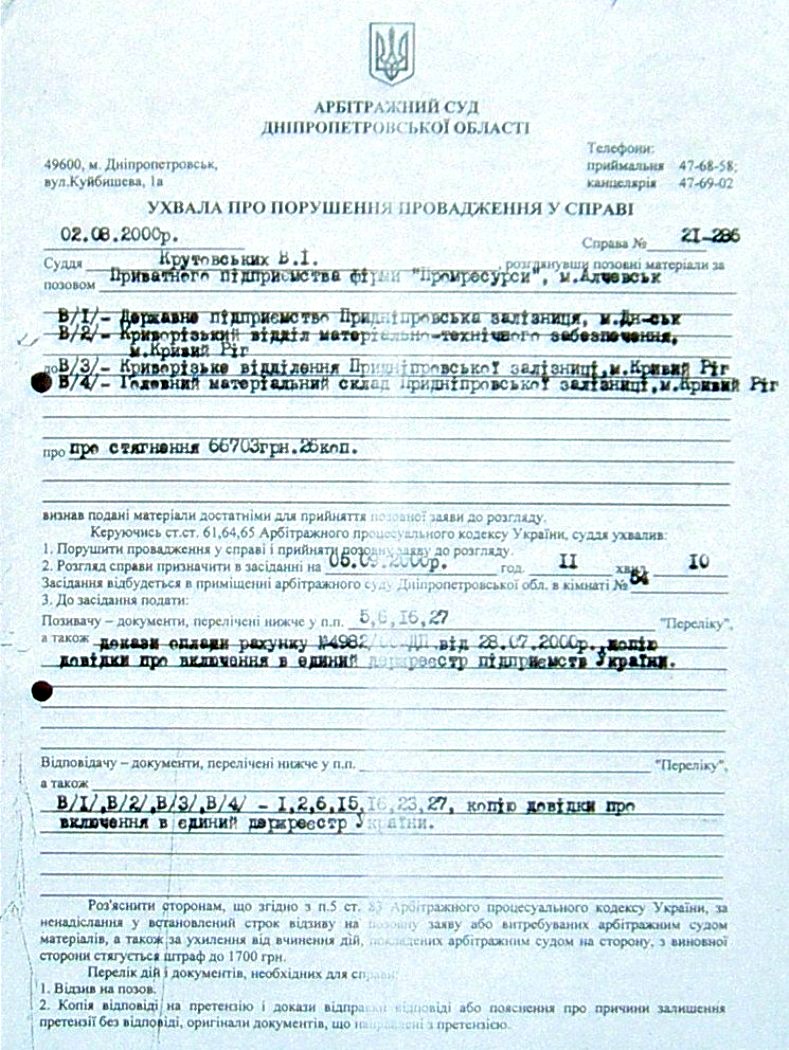 АРБІТРАЖНИЙ СУД
ДНІПРОПЕТРОВСЬКОЇ ОБЛАСТІ
49600, м. Дніпропетровськ,
вул.Куйбишева, 1а
Телефони:
приймальня 47-68-58;
канцелярія 47-69-02
УХВАЛА ПРО ПОРУШЕННЯ ПРОВАДЖЕННЯ У СПРАВІ
02.08.2000р. Справа № 21-286
Суддя Крутовських В.І. , розглянувши позовні матеріали за
позовом Приватного підприємства фірми "Промресурси", м.Алчевськ
В/1/- Державне підприємство Придніпровська залізниця, м.Дн-ськ
В/2/- Криворізький відділ матеріально-технічного забезпечення,
м.Кривий Ріг
до В/3/- Криворізьке відділення Придніпровської залізниці,м.Кривий Ріг
В/4/- Головний матеріальний склад Придніпровської залізниці,м.Кривий Ріг
про про стягнення 66703грн.26коп.
визнав подані матеріали достатніми для прийняття позовної заяви до розгляду.
Керуючись ст.ст. 61,64,65 Арбітражного процесуального кодексу України, суддя ухвалив:
1. Порушити провадження у справі і прийняти позовну заяву до розгляду.
2. Розгляд справи призначити в засіданні на 05.09.2000р. год. 11 хвил. 10
Засідання відбудеться в приміщенні арбітражного суду Дніпропетровської обл. в кімнаті №
3. До засідання подати:
Позивачу – документи, перелічені нижче у п.п. 5,6,16,27 "Переліку",
а також докази оплати рахунку від 28.07.2000р.,копію
довідки про включення в единий держреестр підприємств України.
Відповідачу – документи, перелічені нижче у п.п. "Переліку",
а також
В/1/,В/2/,В/3/,В/4/ - 1,2,6,15,16,23,27, копію довідки про
включення в єдиний держреестр України.
Роз'яснити сторонам, що згідно з п.5 ст. 83 Арбітражного процесуального кодексу України, за
ненадіслання у встановлений строк відзиву на позовну заяву або витребуваних арбітражним судом
матеріалів, а також за ухилення від вчинення дій, покладених арбітражним судом на сторону, з винної
сторони стягується штраф до 1700 грн.
Перелік дій і документів, необхідних для справи:
1. Відзив на позов.
2. Копія відповіді на претензію і докази відправки відповіді або пояснення про причини залишення
претензії без відповіді, оригінали документів, що направлені з претензією.